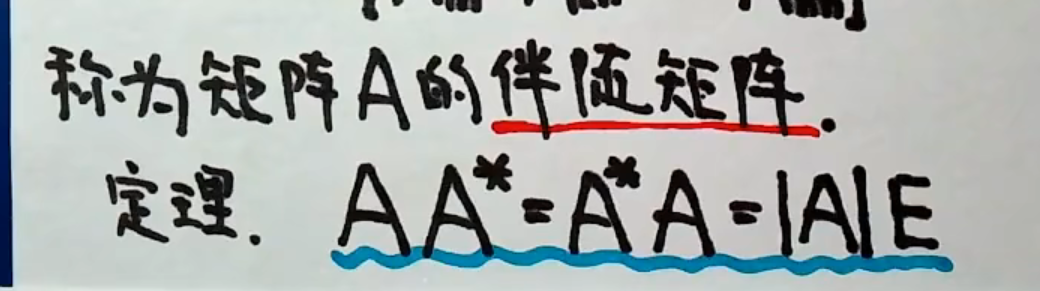 称为矩阵A的伴随矩阵.
定理. AA*=A*A=|A|E